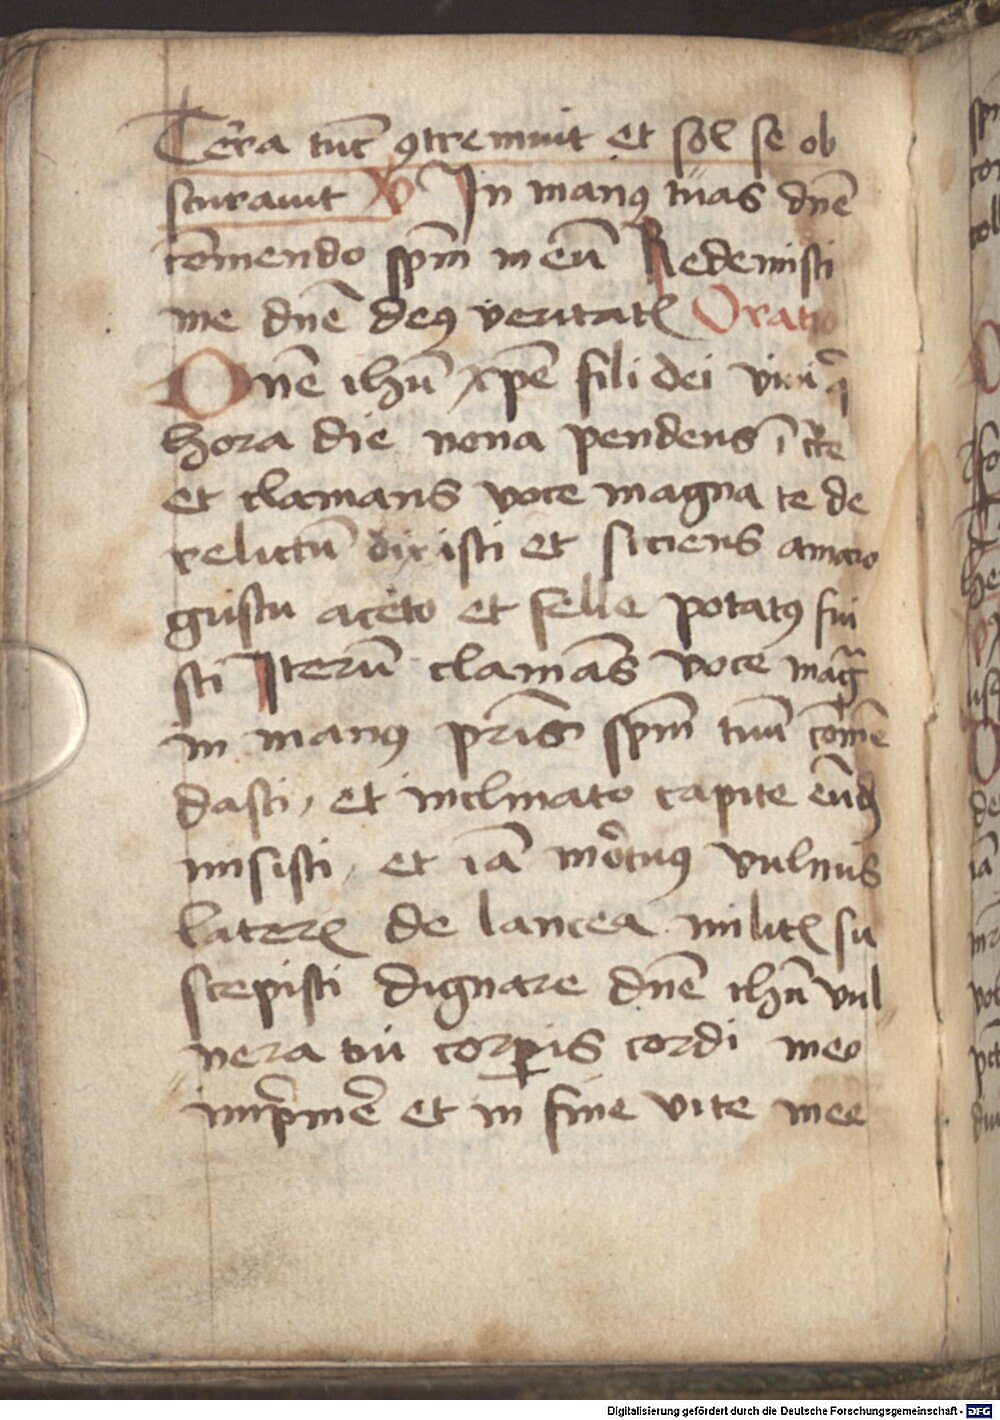 Terra tūc ꝯtremuit et sol se ob
scurauit ℣ In manꝰ tuas dn̄e
cōmendo sp̄m meū Redemisti
me dn̄e deꝰ veritatꝭ Oratio
One ihū xp̄e fili dei viui q̄
hora die nona pendens ī c̄ce
et clamans voce magna te de
relictū dixisti et siciens amaro
gustu aceto et felle potatꝰ fui
sti Iterū clamās voce mag̅
in manꝰ pr̄is sp̄m tuū cōmē
dasti, et inclinato capite eūd
misisti, et iā mortuꝰ vulnus
laterꝭ de lancea militꝭ su
scepisti dignare dn̄e ihū vul
nera tui corꝑis cordi meo
impͥmē et in fine vite mee
Digitalisierung gefördert durch die Deutsche Forschungsgemeinschaft - DFG